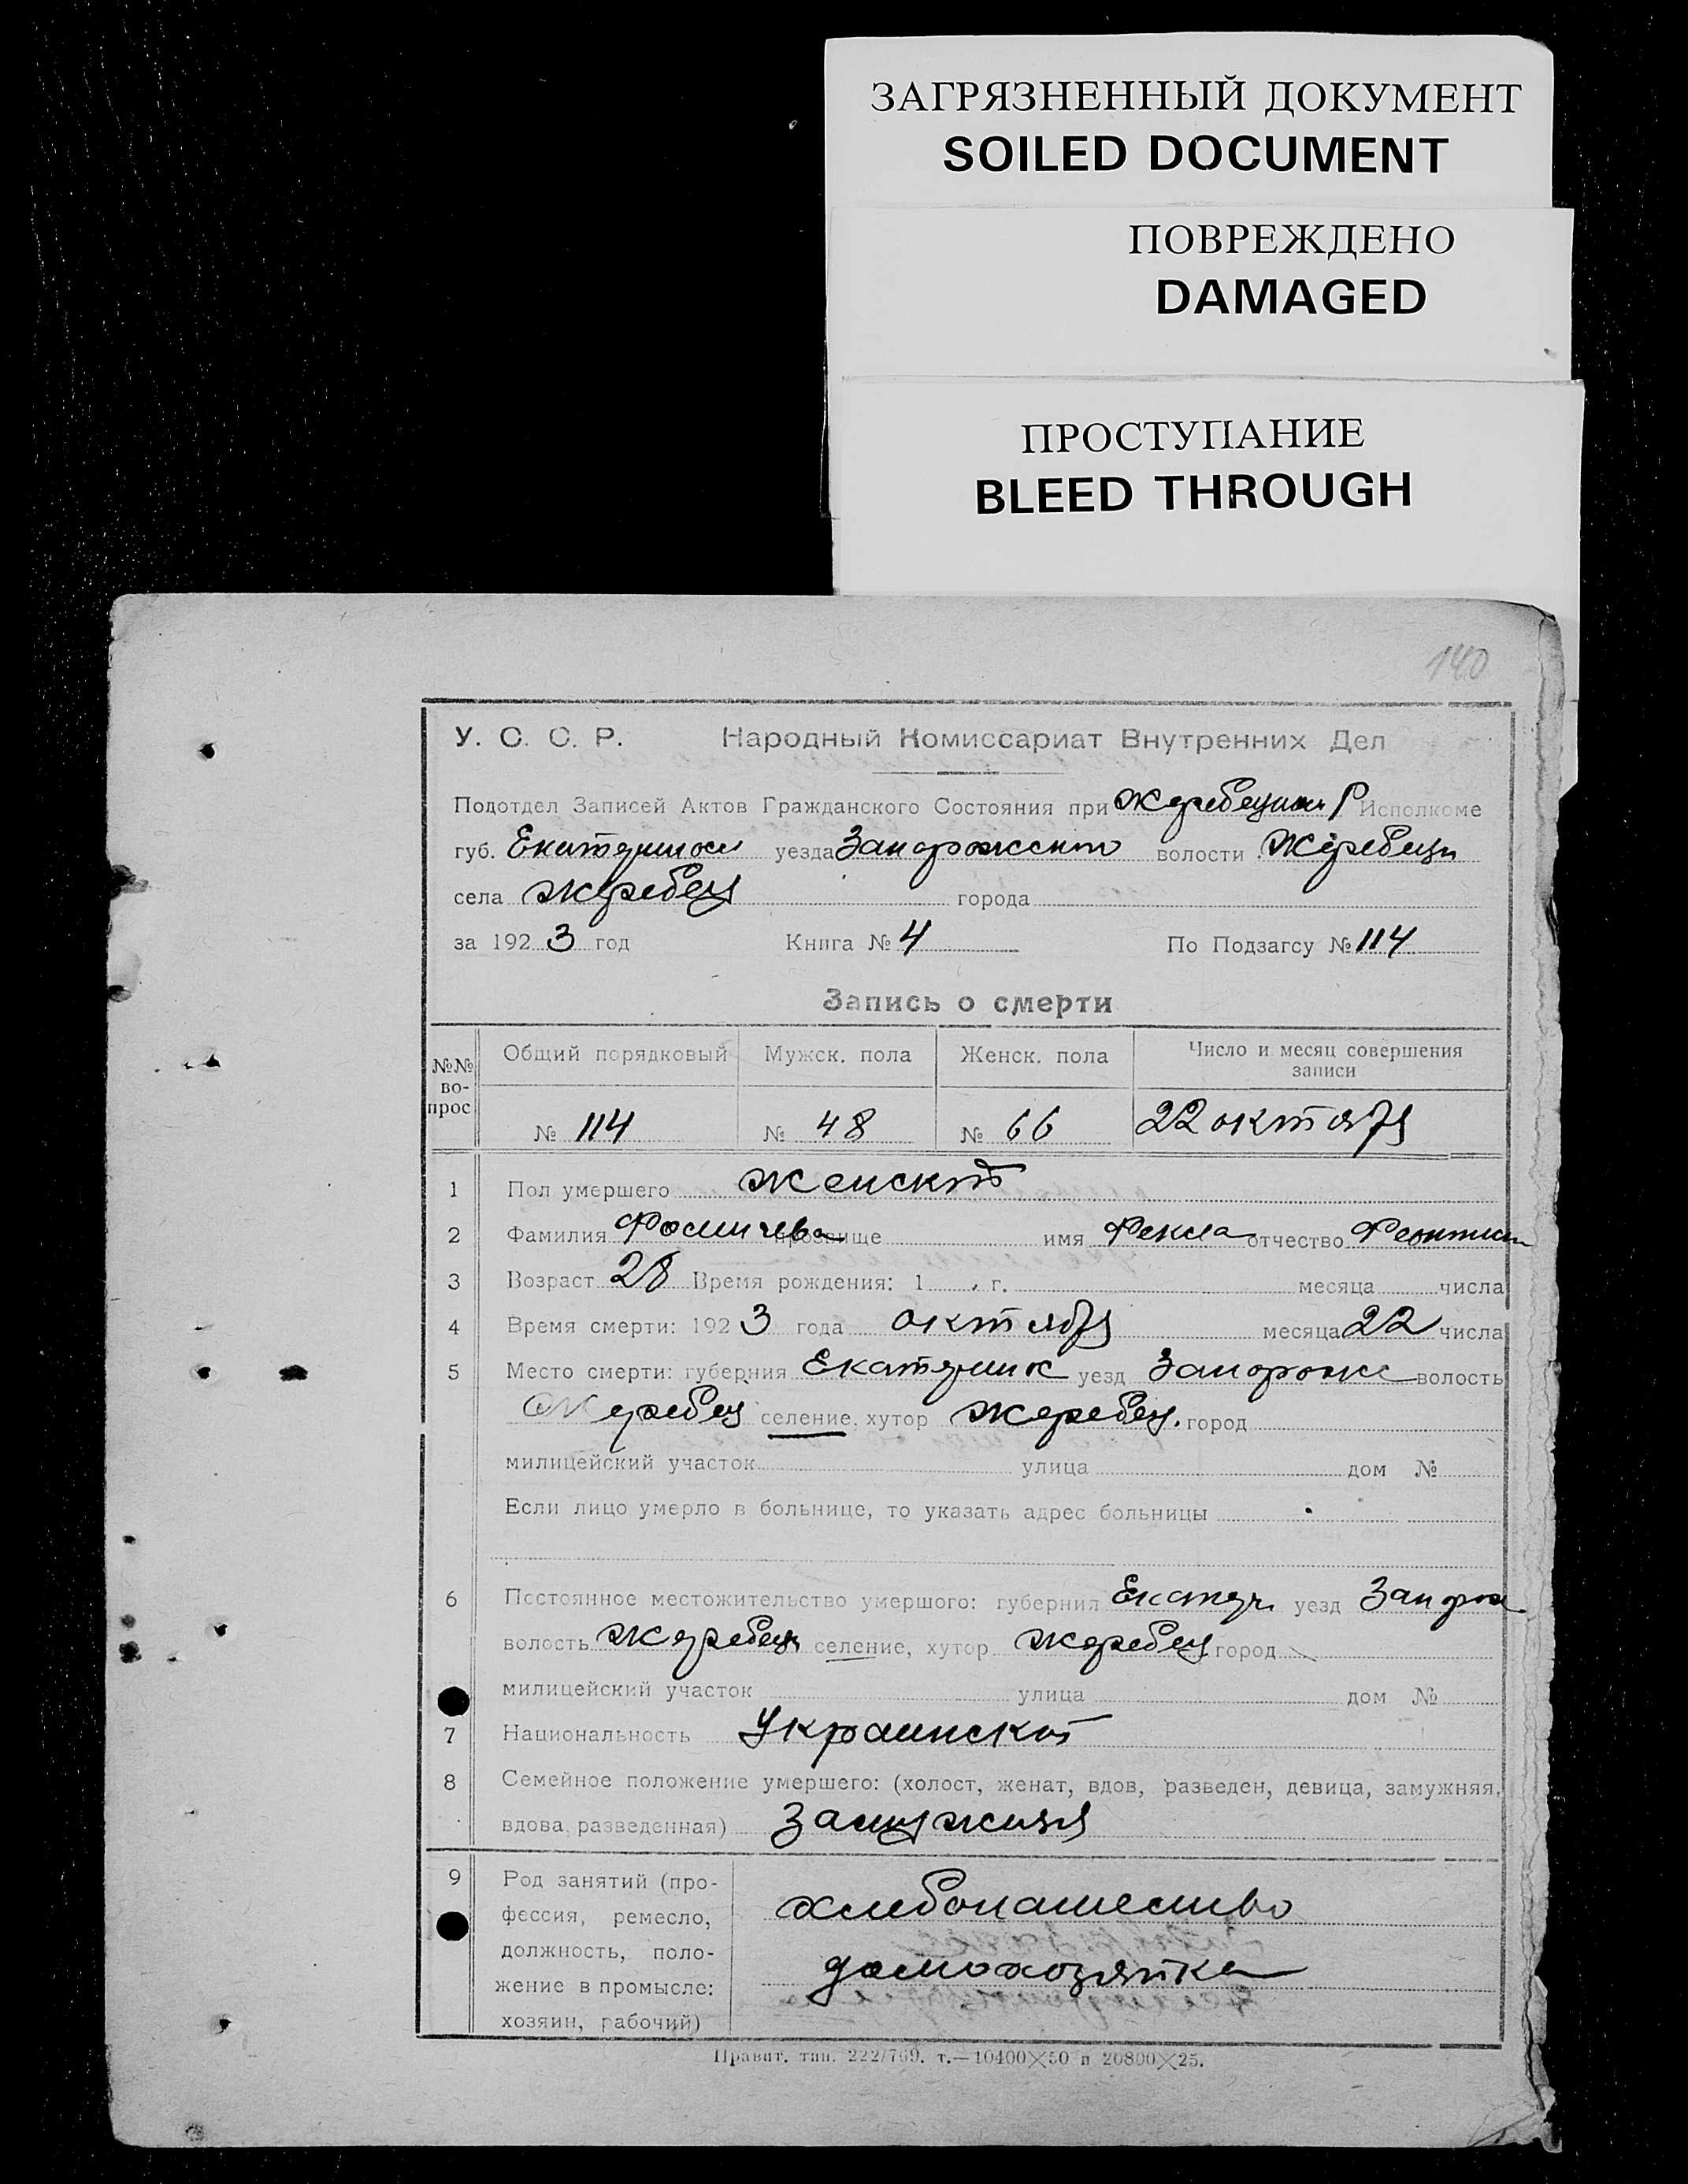 ЗАГРЯЗНЕННЫЙ ДОКУМЕНТ
SOILED DOCUMENT
ПОВРЕЖДЕНО
DAMAGED
ПРОСТУПАНИЕ
BLEED THROUGH
140
У. С. С. Р. Народный Комиссариат Внутренних Дел
Подотдел Записей Актов Гражданского Состояния при Р Исполкоме
губ. уезда волости
села Жеребец города
за 1923 год Книга № 4 По Подзагсу № 114
Запись о смерти
№№ во-прос Общий порядковый Мужск. пола Женск. пола Число и месяц совершения записи
№ 114 № 48 № 66 22 октября
1 Пол умершего женский
2 Фамилия Фомичева прозвище имя Фекла отчество
3 Возраст 28 Время рождения: 1 г. месяца числа
4 Время смерти: 1923 года октября месяца 22 числа
5 Место смерти: губерния уезд волость
Жеребец селение, хутор Жеребец. город
милицейский участок улица дом №
Если лицо умерло в больнице, то указать адрес больницы
6 Постоянное местожительство умершего: губерния Екатер. уезд
волость Жеребец селение, хутор Жеребец город
милицейский участок улица дом №
7 Национальность Украинской
8 Семейное положение умершего: (холост, женат, вдов, разведен, девица, замужняя,
вдова, разведенная) замужняя
9 Род занятий (про- хлебопашество
фессия, ремесло,
должность, поло- домохозяйка
жение в промысле:
хозяин, рабочий)
Правит. тип. 222/769. т.—10400×50 и 20800×25.